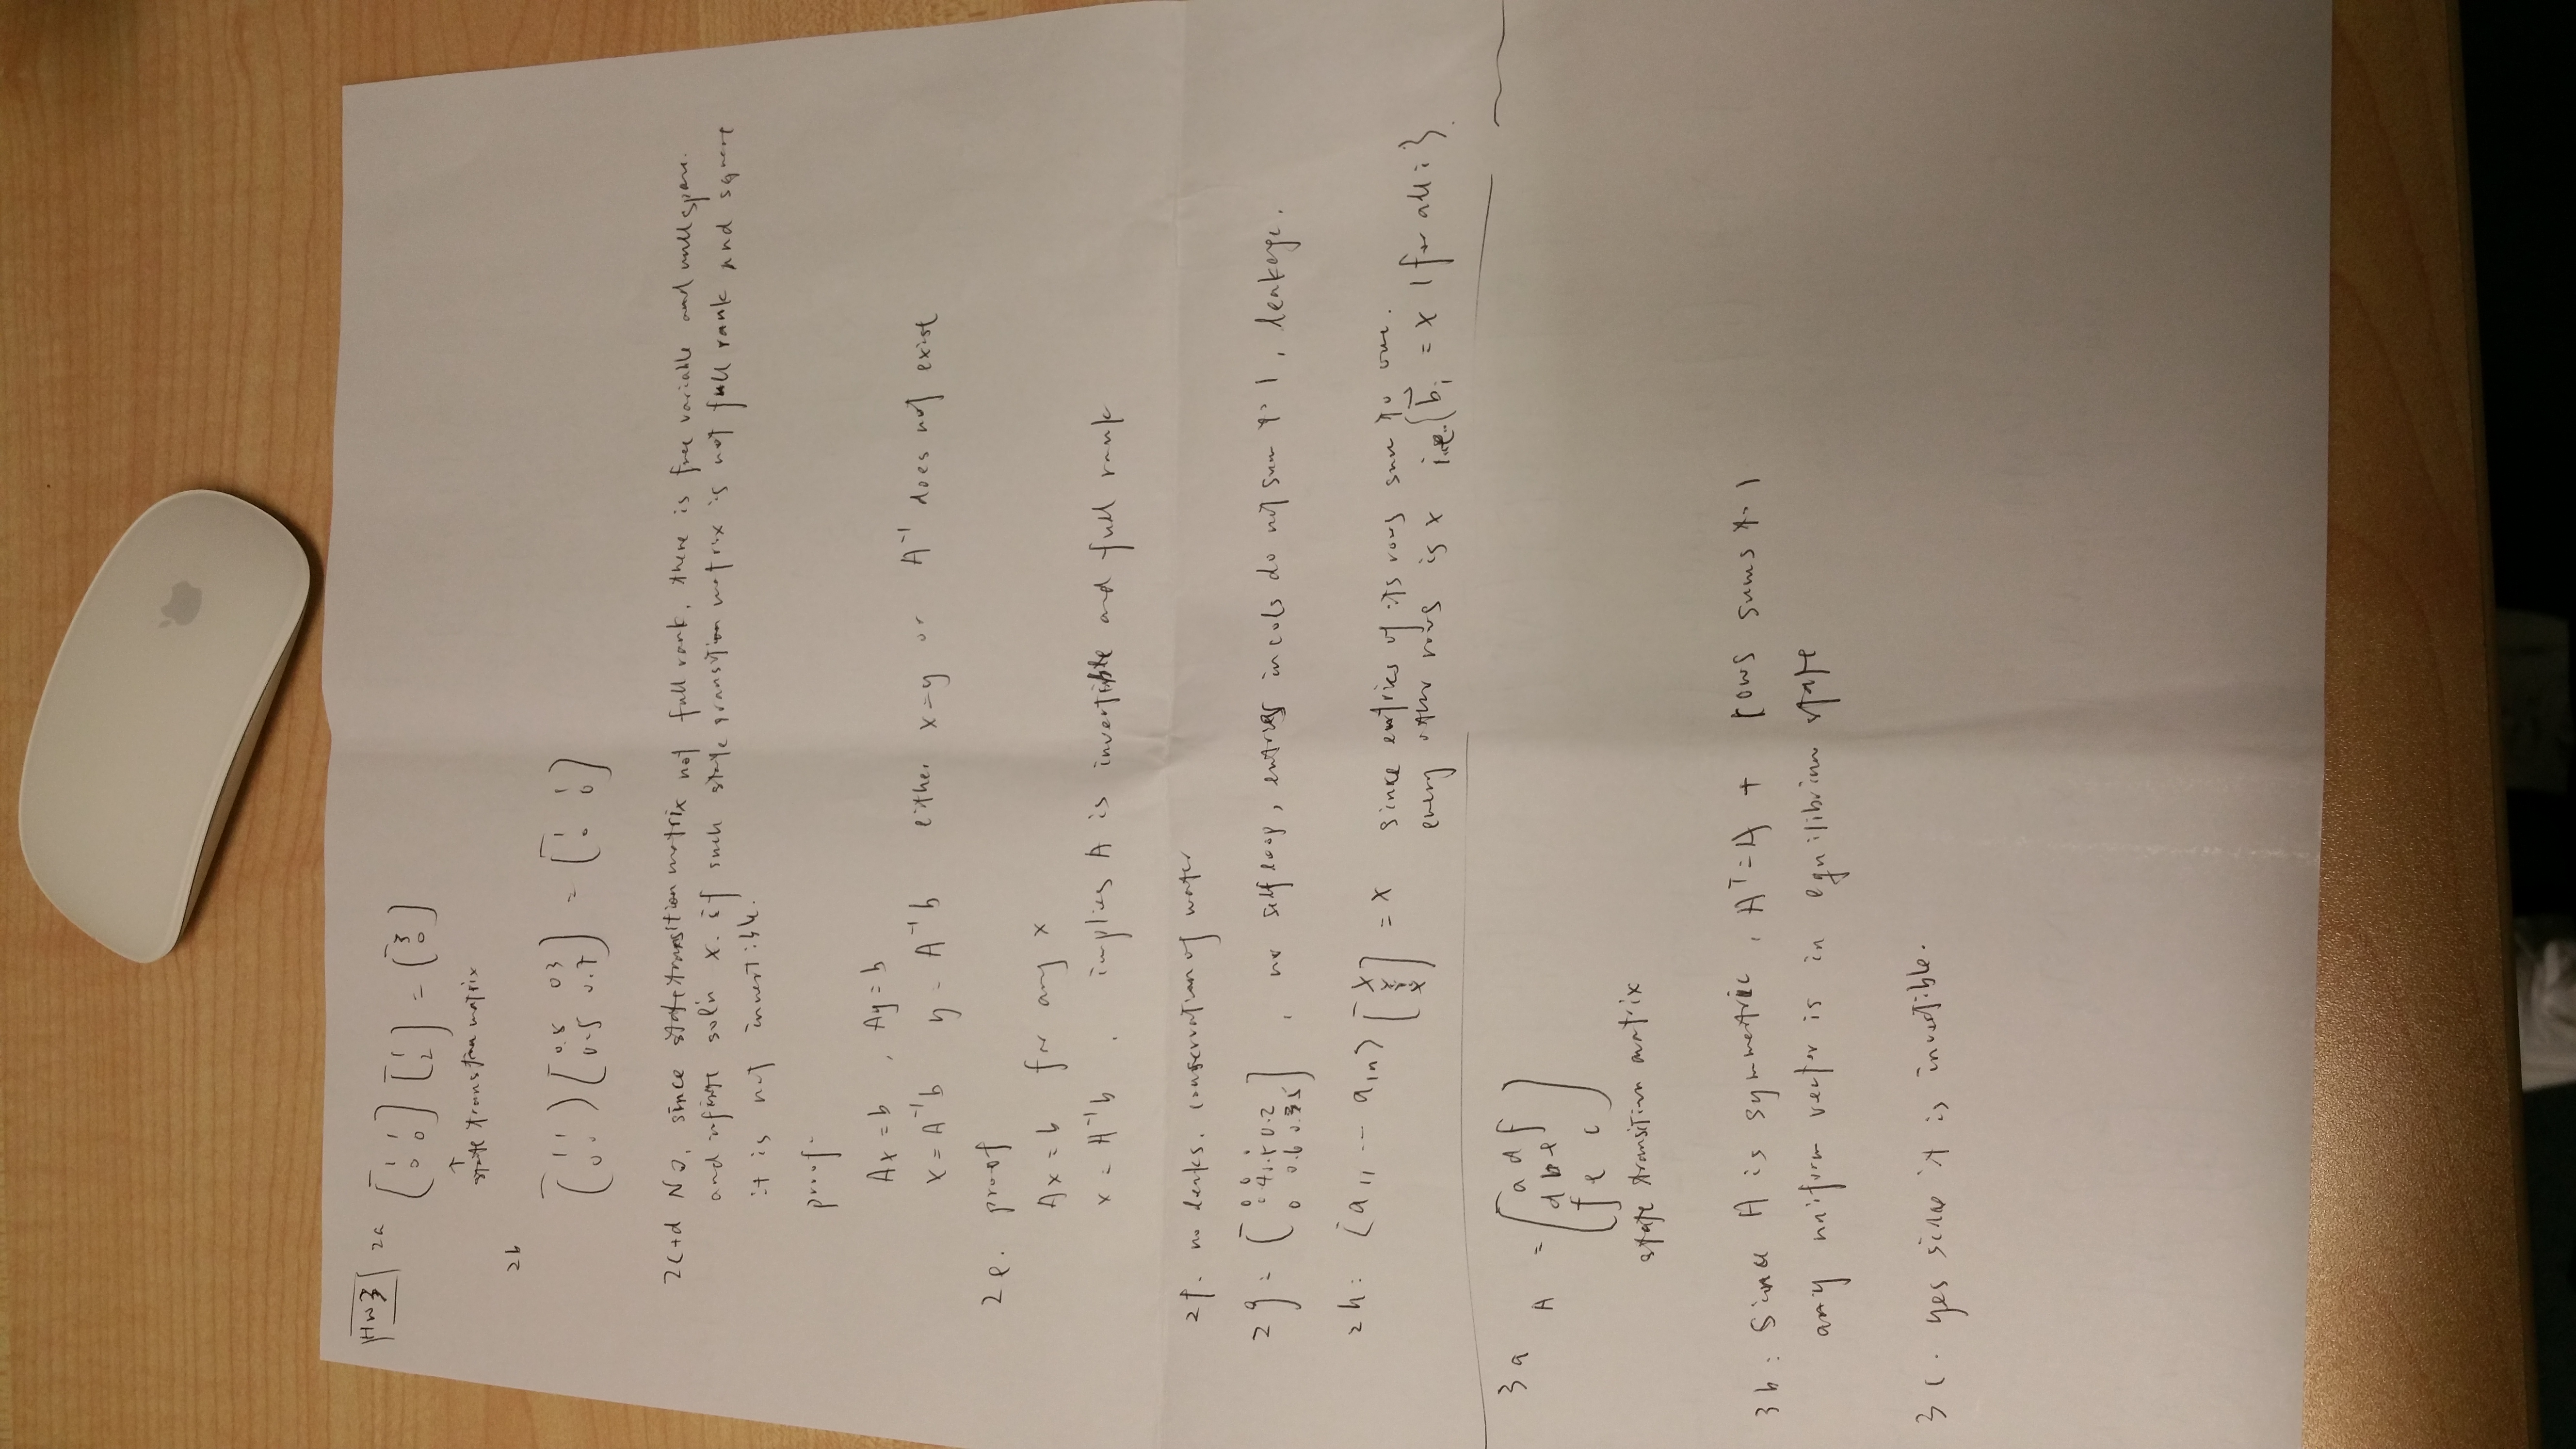 HW3 2a [1 1 0 0] [1 2] = [3 0]
↑
state transition matrix
2b
[1 1 0 0] [0.5 0.3 0.5 0.7] = [1 1 0 0]
2c+d No, since state transition matrix not full rank, there is free variable and null space.
and infinite soln x. if such state transition matrix is not full rank and square
it is not invertible.
proof.
Ax = b , Ay = b
x = A⁻¹b y = A⁻¹b either x=y or A⁻¹ does not exist
2e. proof
Ax = b for any x
x = A⁻¹b , implies A is invertible and full rank
2f. no leaks. conservation of water
2g: , no self loop, entries in cols do not sum to 1, leakage.
2h: [a₁₁ ... a₁ₙ] [x x x] = x since entries of its rows sum to one.
every other rows is x i.e. { b⃗ᵢ = x | for all i }
3a A = [a d f d b e f e c]
state transition matrix
3b: Since A is symmetric, Aᵀ=A + rows sums to 1
any uniform vector is in equilibrium state
3c. yes since it is invertible.